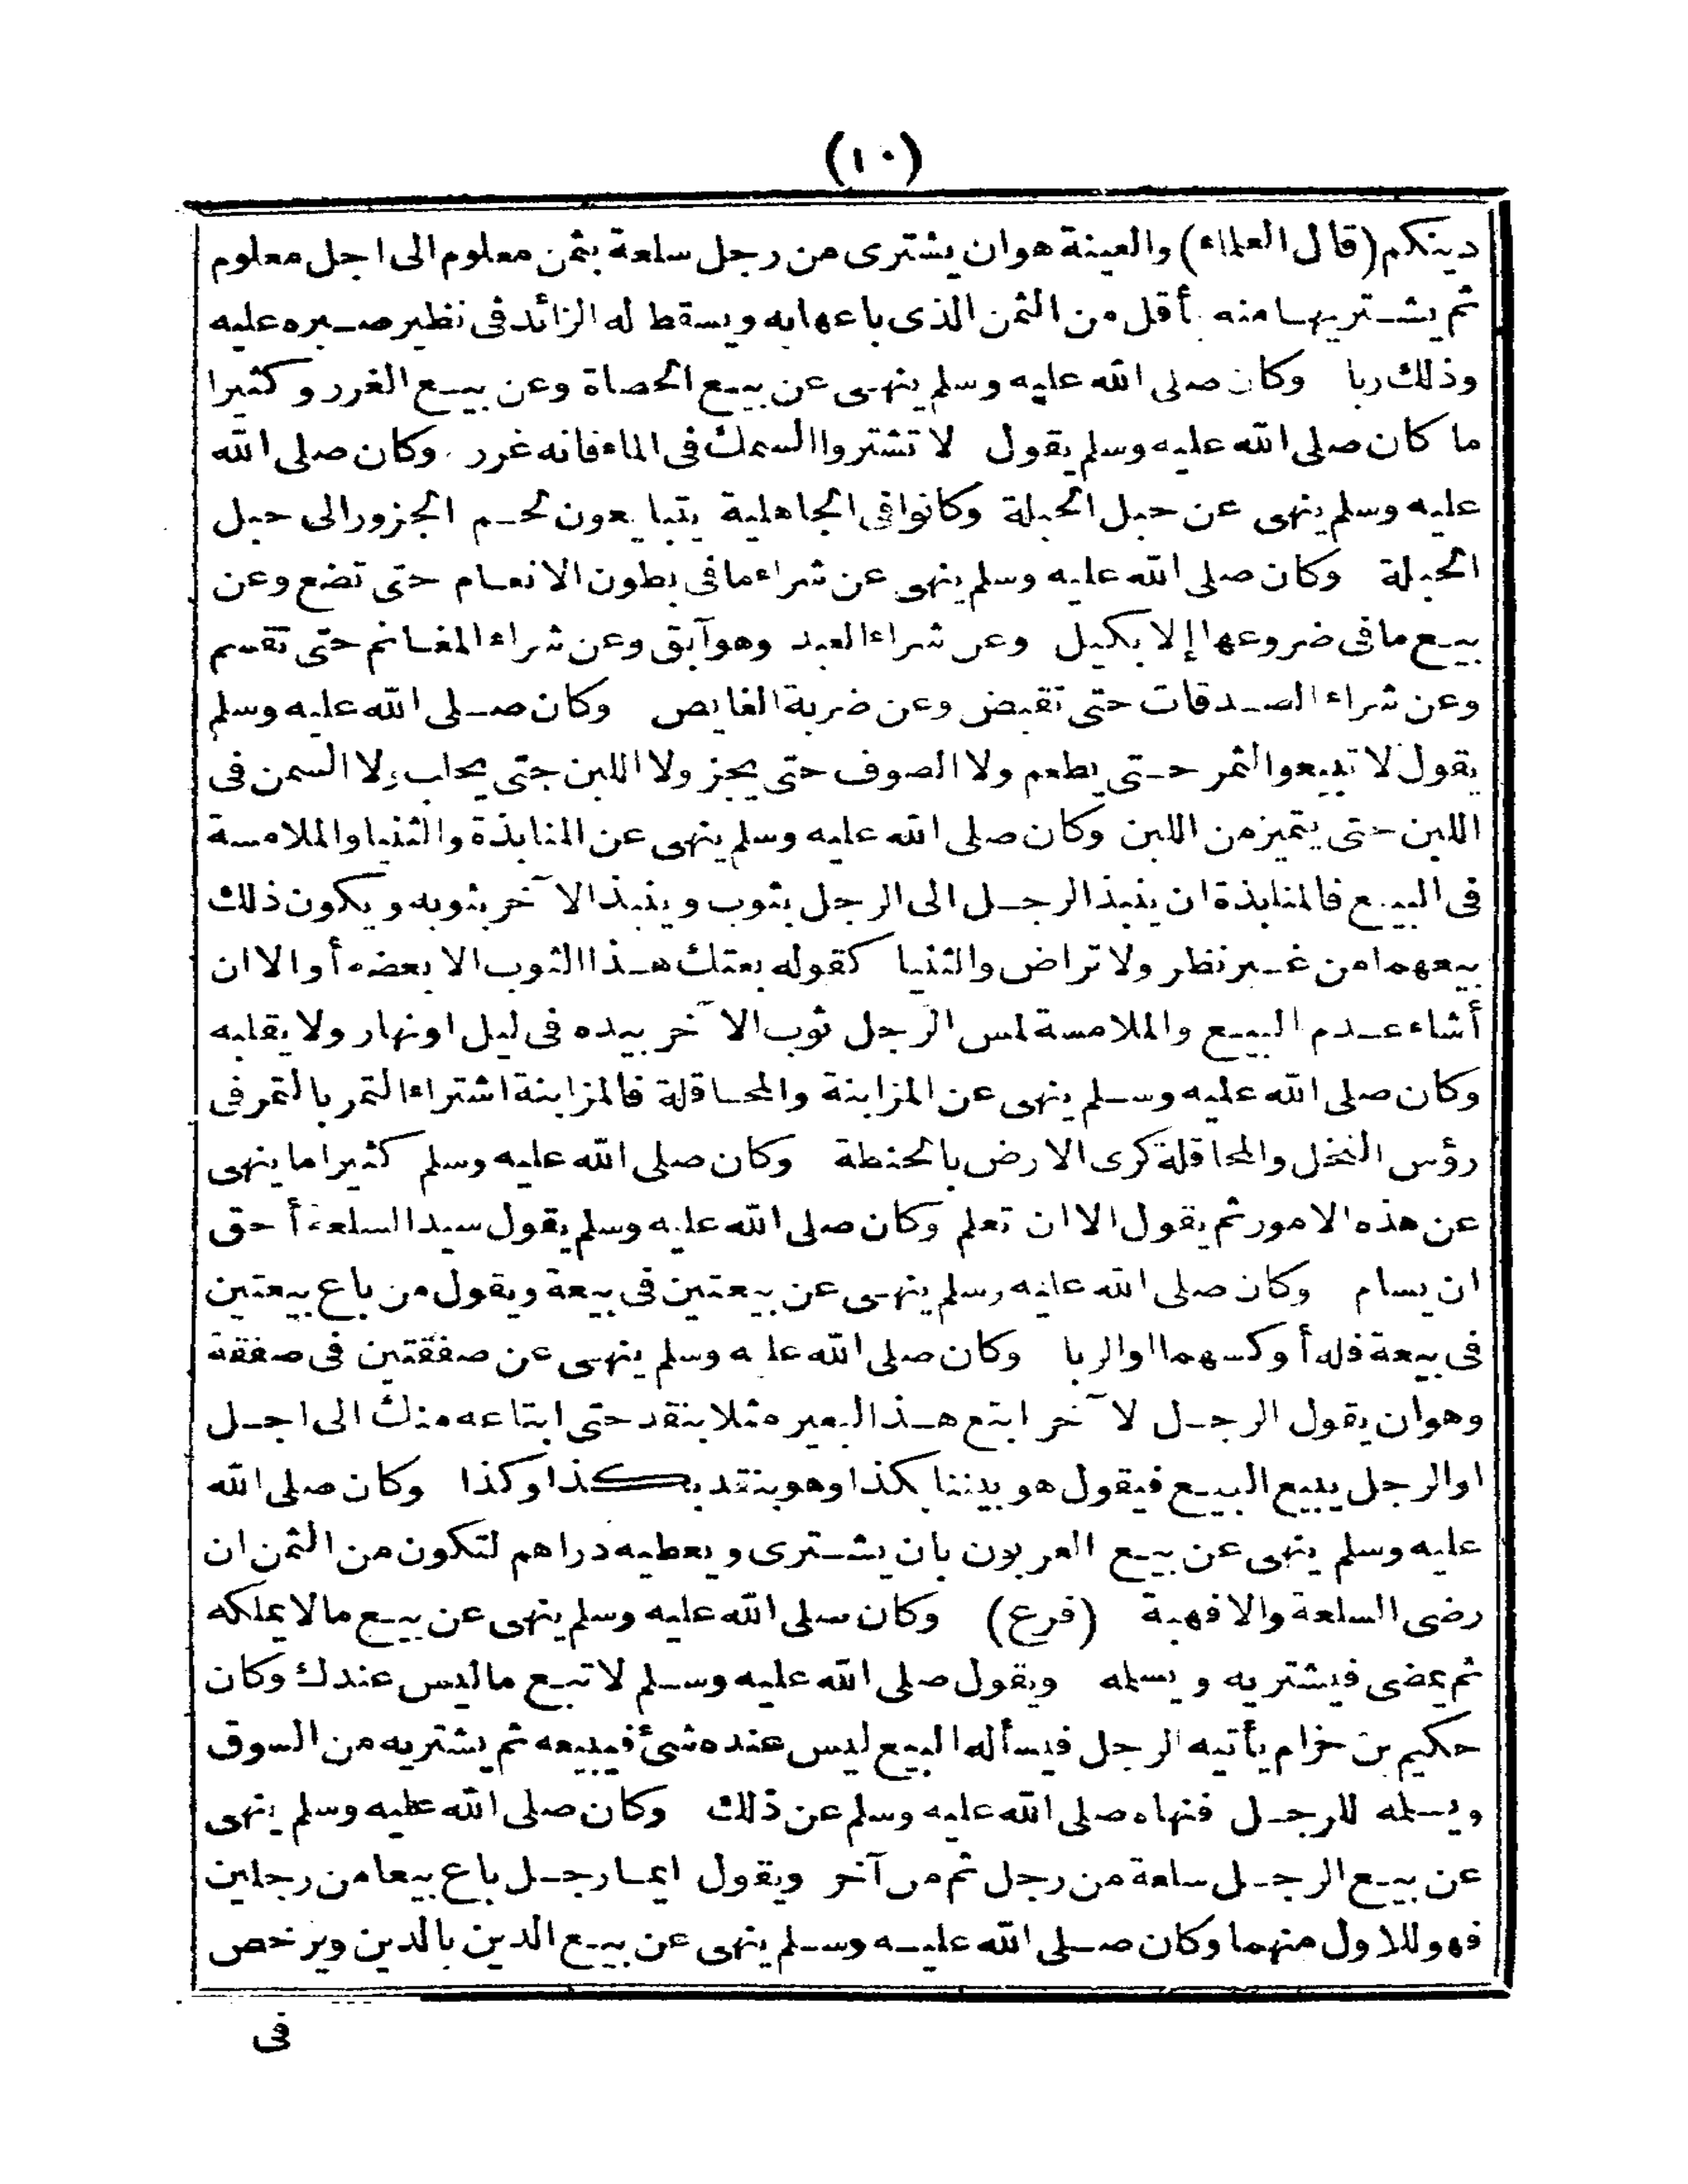 (١٠)
دينكم (قال العلماء) والعينة هو ان يشترى من رجل سلعة بثمن معلوم الى اجل معلوم
ثم يشتريها منه بأقل من الثمن الذى باعها به ويسقط له الزائد فى نظير صبره عليه
وذلك ربا وكان صلى الله عليه وسلم ينهى عن بيع الحصاة وعن بيع الغرر وكثيرا
ما كان صلى الله عليه وسلم يقول لا تشتروا السمك فى الماء فانه غرر وكان صلى الله
عليه وسلم ينهى عن حبل الحبلة وكانوا فى الجاهلية يتبايعون لحم الجزور الى حبل
الحبلة وكان صلى الله عليه وسلم ينهى عن شراء ما فى بطون الانعام حتى تضع وعن
بيع ما فى ضروعها إلا بكيل وعن شراء العبد وهو آبق وعن شراء المغانم حتى تقسم
وعن شراء الصدقات حتى تقبض وعن ضربة الغايص وكان صلى الله عليه وسلم
يقول لا تبيعوا الثمر حتى يطعم ولا الصوف حتى يجز ولا اللبن حتى يحلب ولا السمن فى
اللبن حتى يتميز من اللبن وكان صلى الله عليه وسلم ينهى عن المنابذة والثنيا والملامسة
فى البيع فالمنابذة ان ينبذ الرجل الى الرجل بثوب وينبذ الآخر بثوبه ويكون ذلك
بيعهما من غير نظر ولا تراض والثنيا كقوله بعتك هذا الثوب الا بعضه أو الا ان
أشاء عدم البيع والملامسة لمس الرجل ثوب الآخر بيده فى ليل او نهار ولا يقلبه
وكان صلى الله عليه وسلم ينهى عن المزابنة والمحاقلة فالمزابنة اشتراء التمر بالتمر فى
رؤس النخل والمحاقلة كرى الارض بالحنطة وكان صلى الله عليه وسلم كثيرا ما ينهى
عن هذه الامور ثم يقول الا ان تعلم وكان صلى الله عليه وسلم يقول سيد السلعة أحق
ان يسام وكان صلى الله عليه وسلم ينهى عن بيعتين فى بيعة ويقول من باع بيعتين
فى بيعة فله أوكسهما او الربا وكان صلى الله عليه وسلم ينهى عن صفقتين فى صفقة
وهو ان يقول الرجل لآخر ابتع هذا البعير مثلا بنقد حتى ابتاعه منك الى اجل
او الرجل يبيع البيع فيقول هو بيننا بكذا وهو بنقد بكذا وكذا وكان صلى الله
عليه وسلم ينهى عن بيع العربون بان يشترى ويعطيه دراهم لتكون من الثمن ان
رضى السلعة والا فهبة (فرع) وكان صلى الله عليه وسلم ينهى عن بيع ما لا يملكه
ثم يمضى فيشتريه ويسلمه ويقول صلى الله عليه وسلم لا تبع ما ليس عندك وكان
حكيم بن خزام يأتيه الرجل فيسأله البيع ليس عنده شئ فيبيعه ثم يشتريه من السوق
ويسلمه للرجل فنهاه صلى الله عليه وسلم عن ذلك وكان صلى الله عليه وسلم ينهى
عن بيع الرجل سلعة من رجل ثم من آخر ويقول ايما رجل باع بيعا من رجلين
فهو للاول منهما وكان صلى الله عليه وسلم ينهى عن بيع الدين بالدين ويرخص
فى